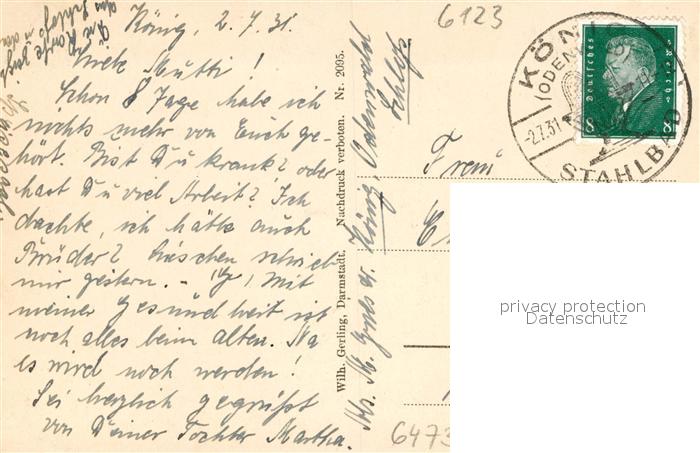 König, 2. 7. 31.
Mutti!
Schon 8 Tage habe ich
nichts mehr von Euch ge-
hört. Bist Du krank? oder
hast Du viel Arbeit? Ich
dachte, ich hätte auch
Brüder? Lieschen schrieb
mir gestern. - Mit
meiner Gesundheit ist
noch alles beim Alten. Na
es wird noch werden!
Sei herzlich gegrüßt
von Deiner Tochter Martha.
Wilh. Gerling, Darmstadt. Nachdruck verboten. Nr. 2095.
König, Odenwald
Schloß
6123
KÖNIG
(ODENWALD)
-2.7.31
STAHLBAD
Deutsches Reich
8 8
Frau
privacy protection
Datenschutz
6473